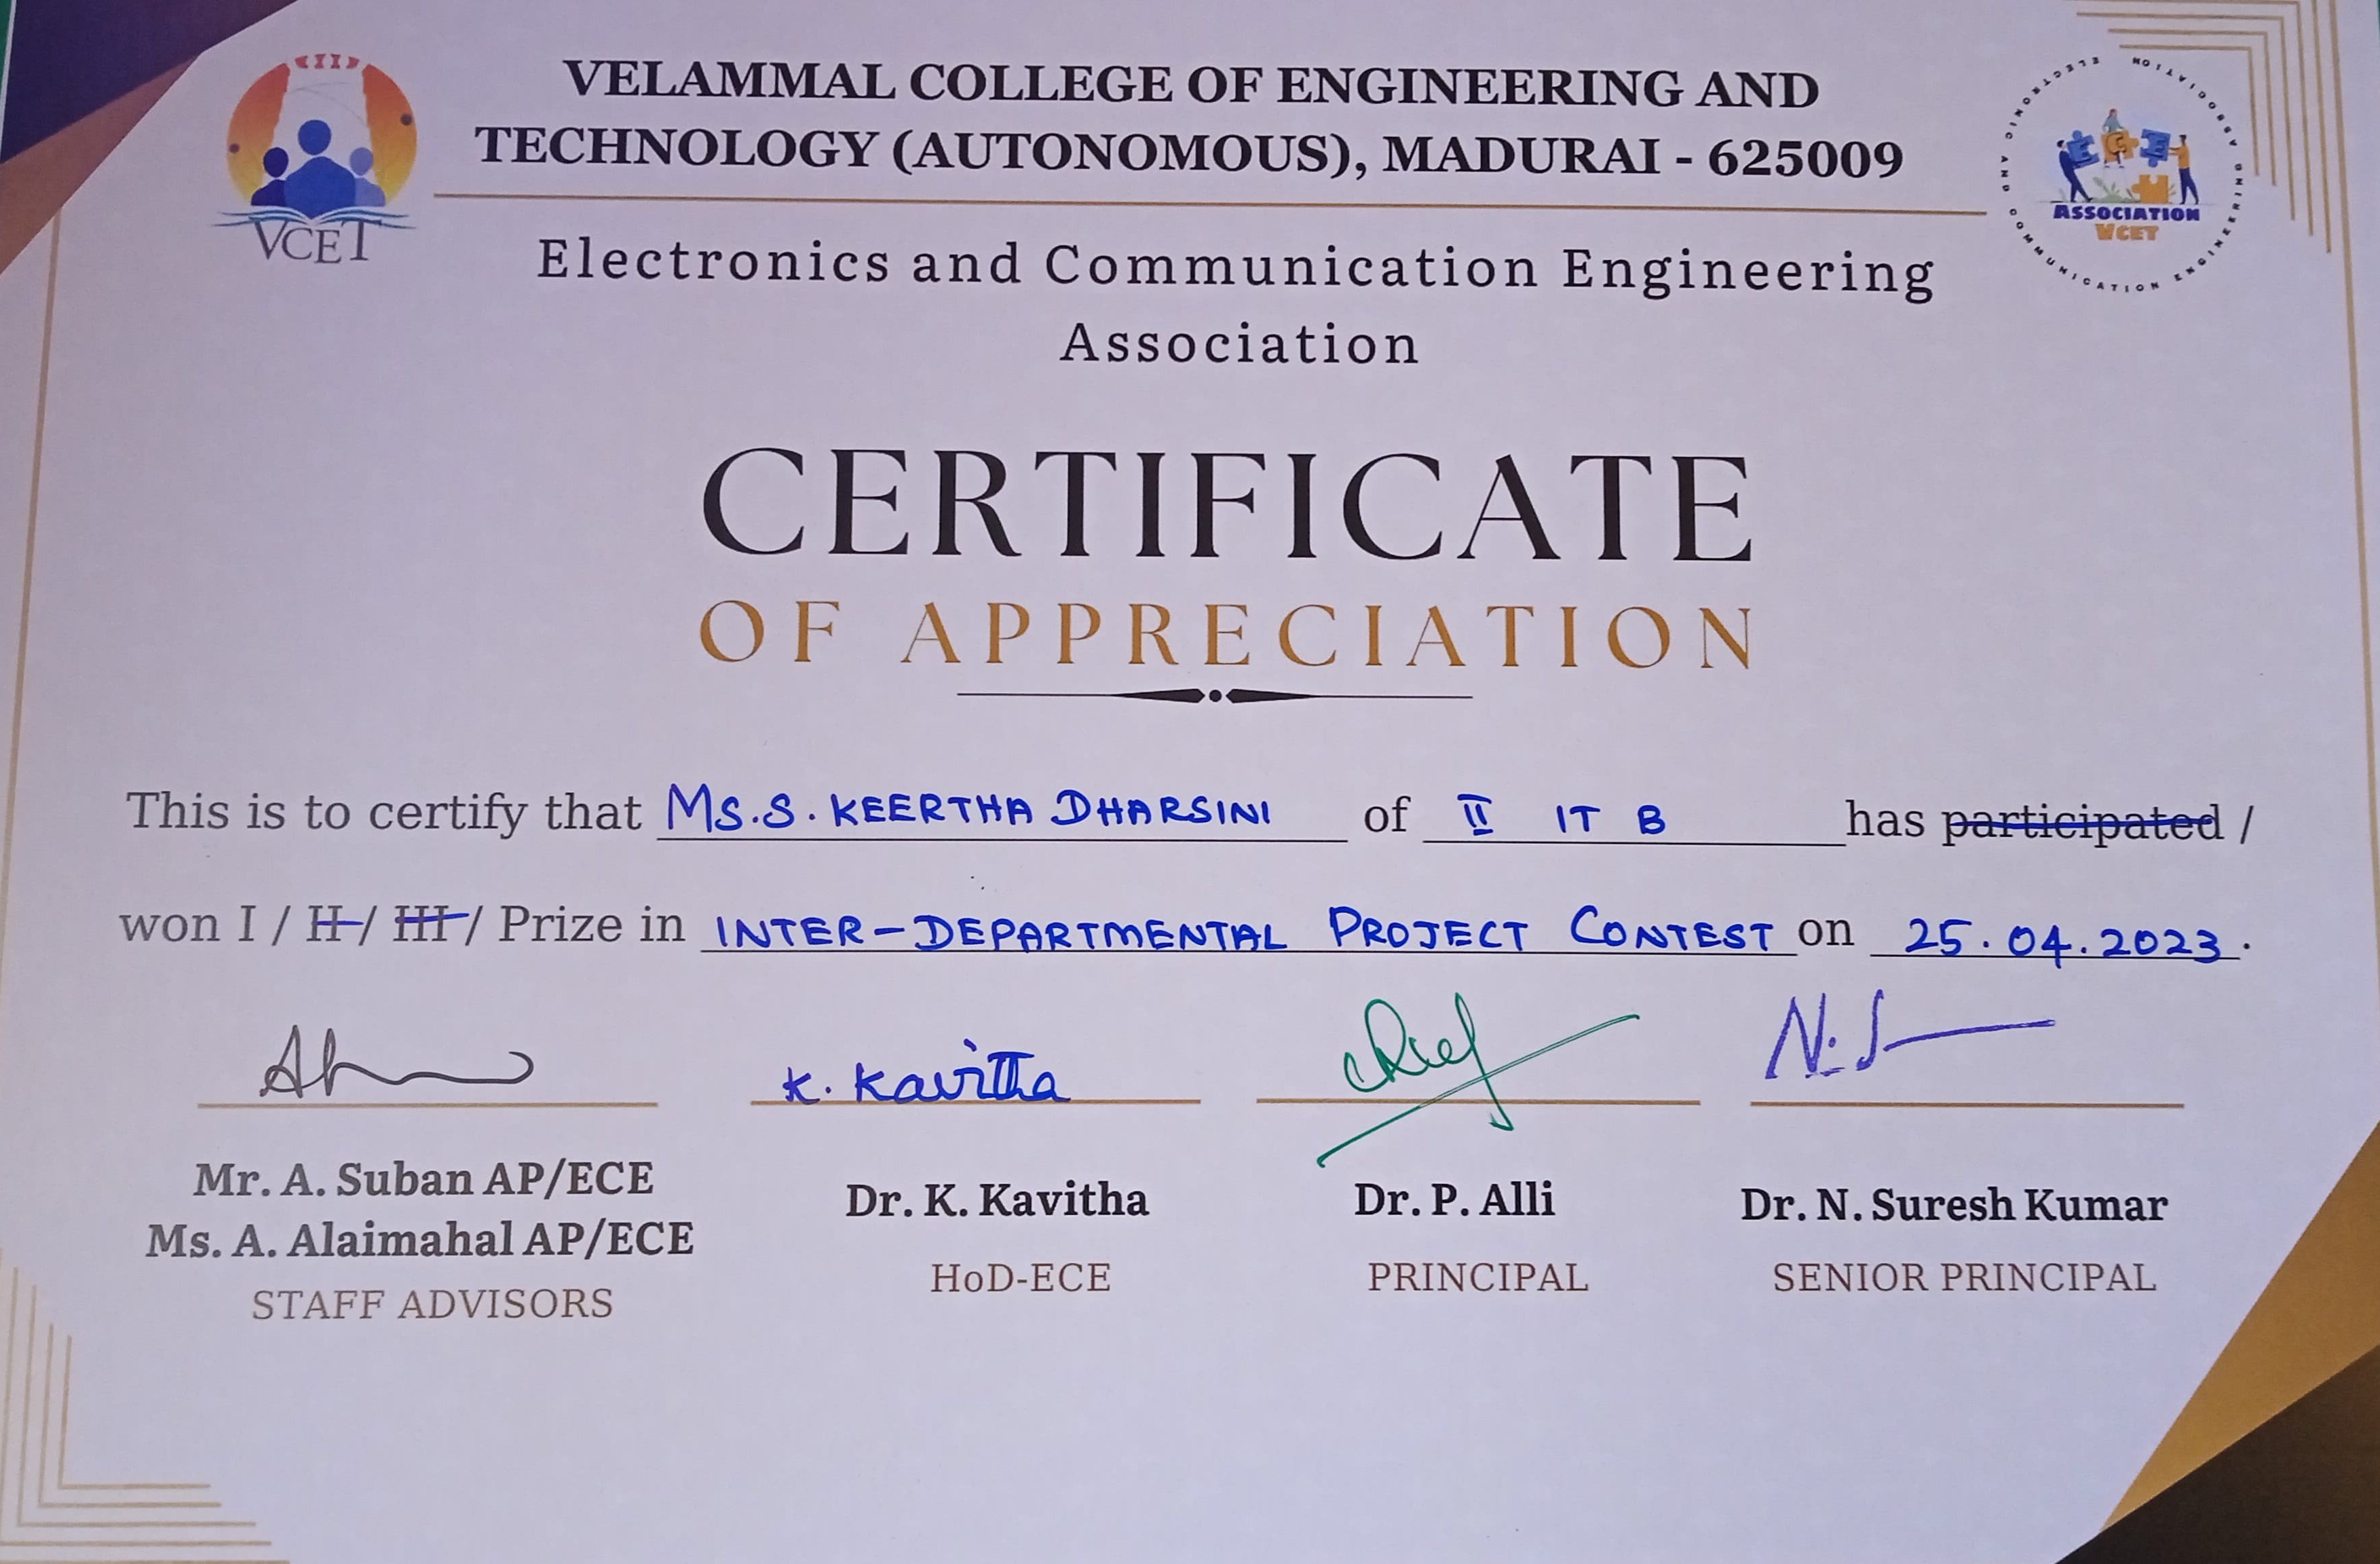 VELAMMAL COLLEGE OF ENGINEERING AND
TECHNOLOGY (AUTONOMOUS), MADURAI - 625009
VCET
ELECTRONIC AND COMMUNICATION ENGINEERING ASSOCIATION
ECE
ASSOCIATION
VCET
Electronics and Communication Engineering
Association
CERTIFICATE
OF APPRECIATION
This is to certify that MS.S. KEERTHA DHARSINI of II IT B has participated /
won I / II / III / Prize in INTER-DEPARTMENTAL PROJECT CONTEST on 25.04.2023.
K. Kavitha
Mr. A. Suban AP/ECE
Ms. A. Alaimahal AP/ECE
STAFF ADVISORS
Dr. K. Kavitha
HoD-ECE
Dr. P. Alli
PRINCIPAL
Dr. N. Suresh Kumar
SENIOR PRINCIPAL